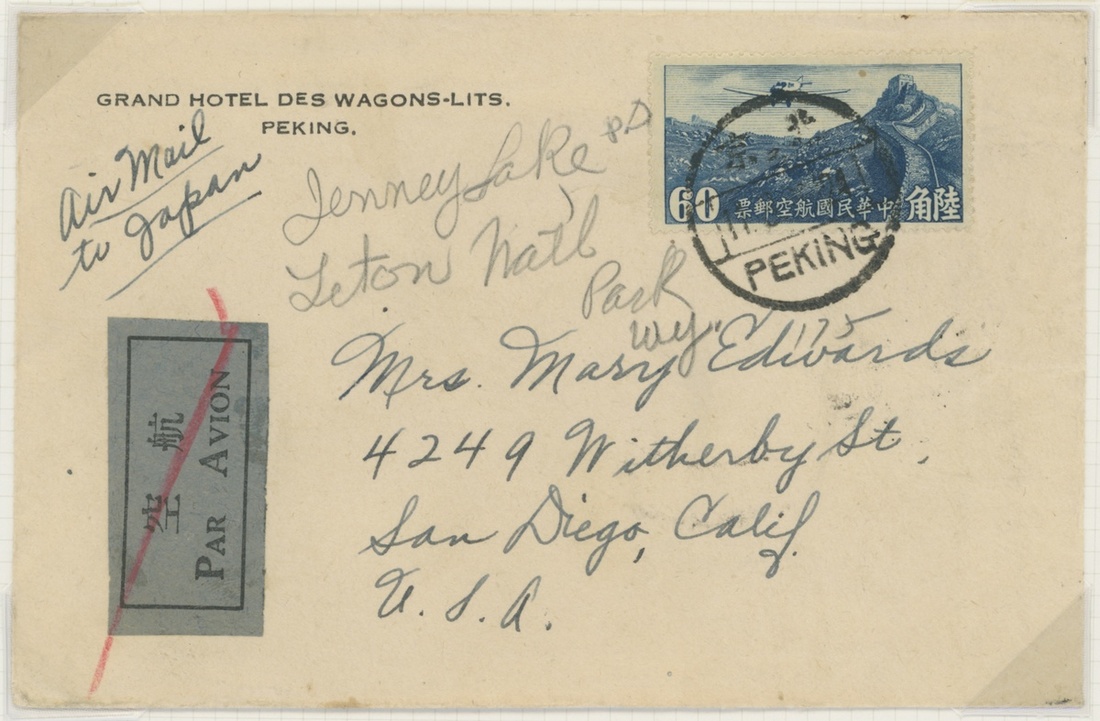 GRAND HOTEL DES WAGONS-LITS.
PEKING.
Air Mail
to Japan
Jenney Lake
Teton Natl
Park
Wy.
60
中華民國航空郵票
陸角
PEKING
Mrs. Mary Edwards
4249 Witherby St,
San Diego, Calif.
U. S. A.
航空
PAR AVION